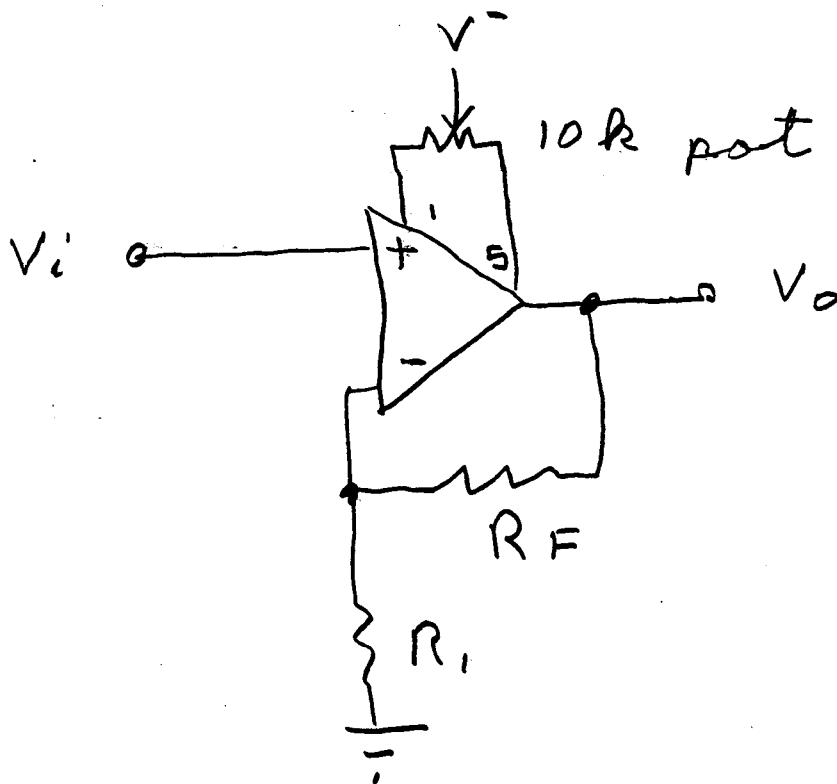 V⁻
10 k pot
1
Vi
+
5
Vo
-
RF
R1